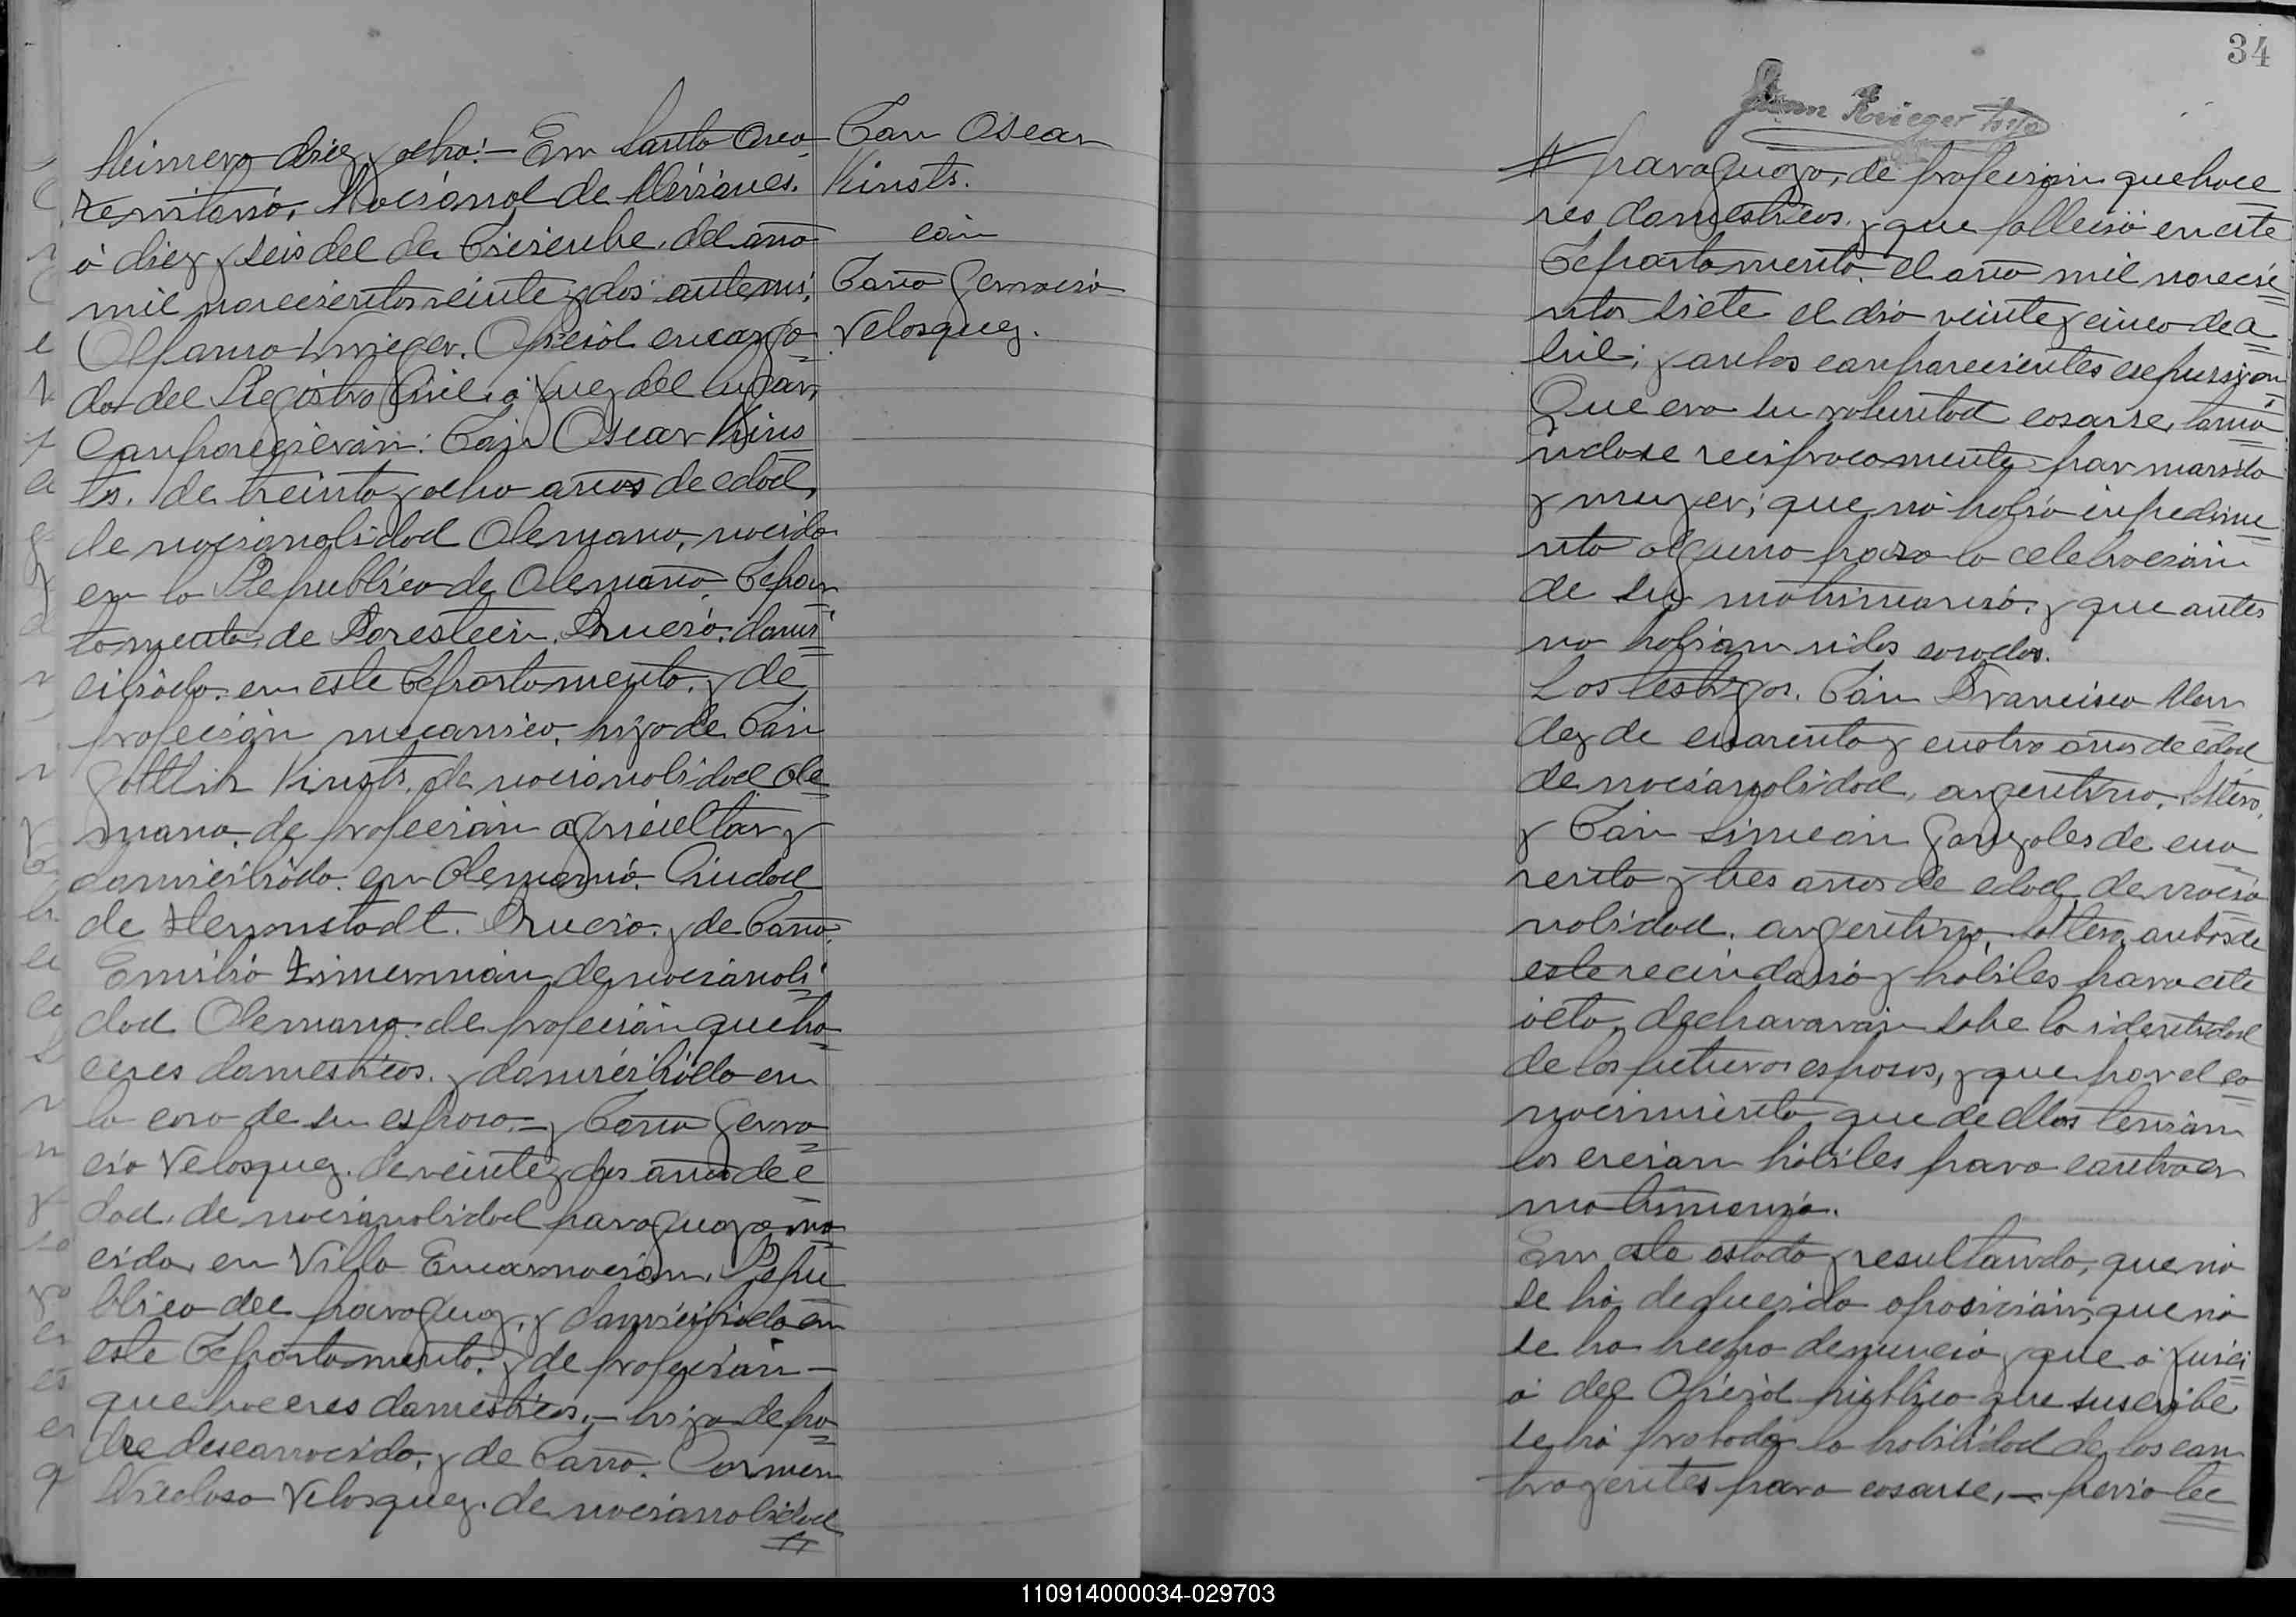 Númera diez y ocho:- En Santo Ana
Teritorio, Nacional de Misiones.
á diez y seis del de Diciembe, del ano
mil novecientos veinte y dos: antemi,
Krieger. Oficial encarga
do del Registro Civil, o Juez del lugar,
Comparecieron: Don Oscar Kins
ts. de treinta y ocho anos de edad,
de nacionalidad Alemana, nacido
en la Republica de Alemana. Depar
tomento de Prucia. domi
ciliado en este Departamento. y de
profecion mecanico, hijo de Don
Gottlib Kinsts. de nacionalidad Ale
mana. de profecion agricultor y
domiciliado en Alemania. Ciudad
de Herynstadt. Prucia. y de Dona
Emilia Zimerman, de nacionali
dad Alemana. de profecion queha
ceres domesticos. y domiciliada en
la casa de su esposo.- y Dona Gerva
cia Velasquez. de veinte y dos anos de e
dad. de nacionalidad paraguaya na
cida, en Villa Encarnacion. Repu
blica del paraguay, y domiciliada en
este Departamento. y de profecion -
que haceres domesticos.- hija de pa
dre desconocido, y de Dona. Carmen
Nicolasa Velasquez. de nacionalidad
//
Don Oscar
Kinsts.
con
Dona Gervacia
Velasquez.
34
Juan Krieger hijo
// paraguaya, de profecion quehace
res domesticos. y que fallecio en este
Departamento. el ano mil novecie
ntos siete el dia veinte y cinco de a
bril; y ambos comparecientes espusieron,
Que era su voluntad casarse, toma
ndose reciprocamente por marido
y mujer; que no habia inpedime
nto alguno para la celebracion
de su matrimonio. y que antes
no habian sidos casados.
Los testigos. Don Francisco Men
dez de cuarenta y cuatro anos de edad
de nacionalidad, argentino, soltero,
y Don Simeon Gonzales de cua
renta y tres anos de edad, de nacio
nalidad. argentino, soltero, ambos de
este vecindario y habiles para este
acto, declararon sobe la identidad
de los futuros esposos, y que por el co
nocimiento que de ellos tenian
los creian habiles para contraer
matrimonio.
En este estado y resultando, que no
se ha deducido oposicion, que no
se ha hecho denuncia y que a juici
o del Oficial publico que suscribe
se ha probado la habilidad de los con
trayentes para casarse, - previa lec
110914000034-029703